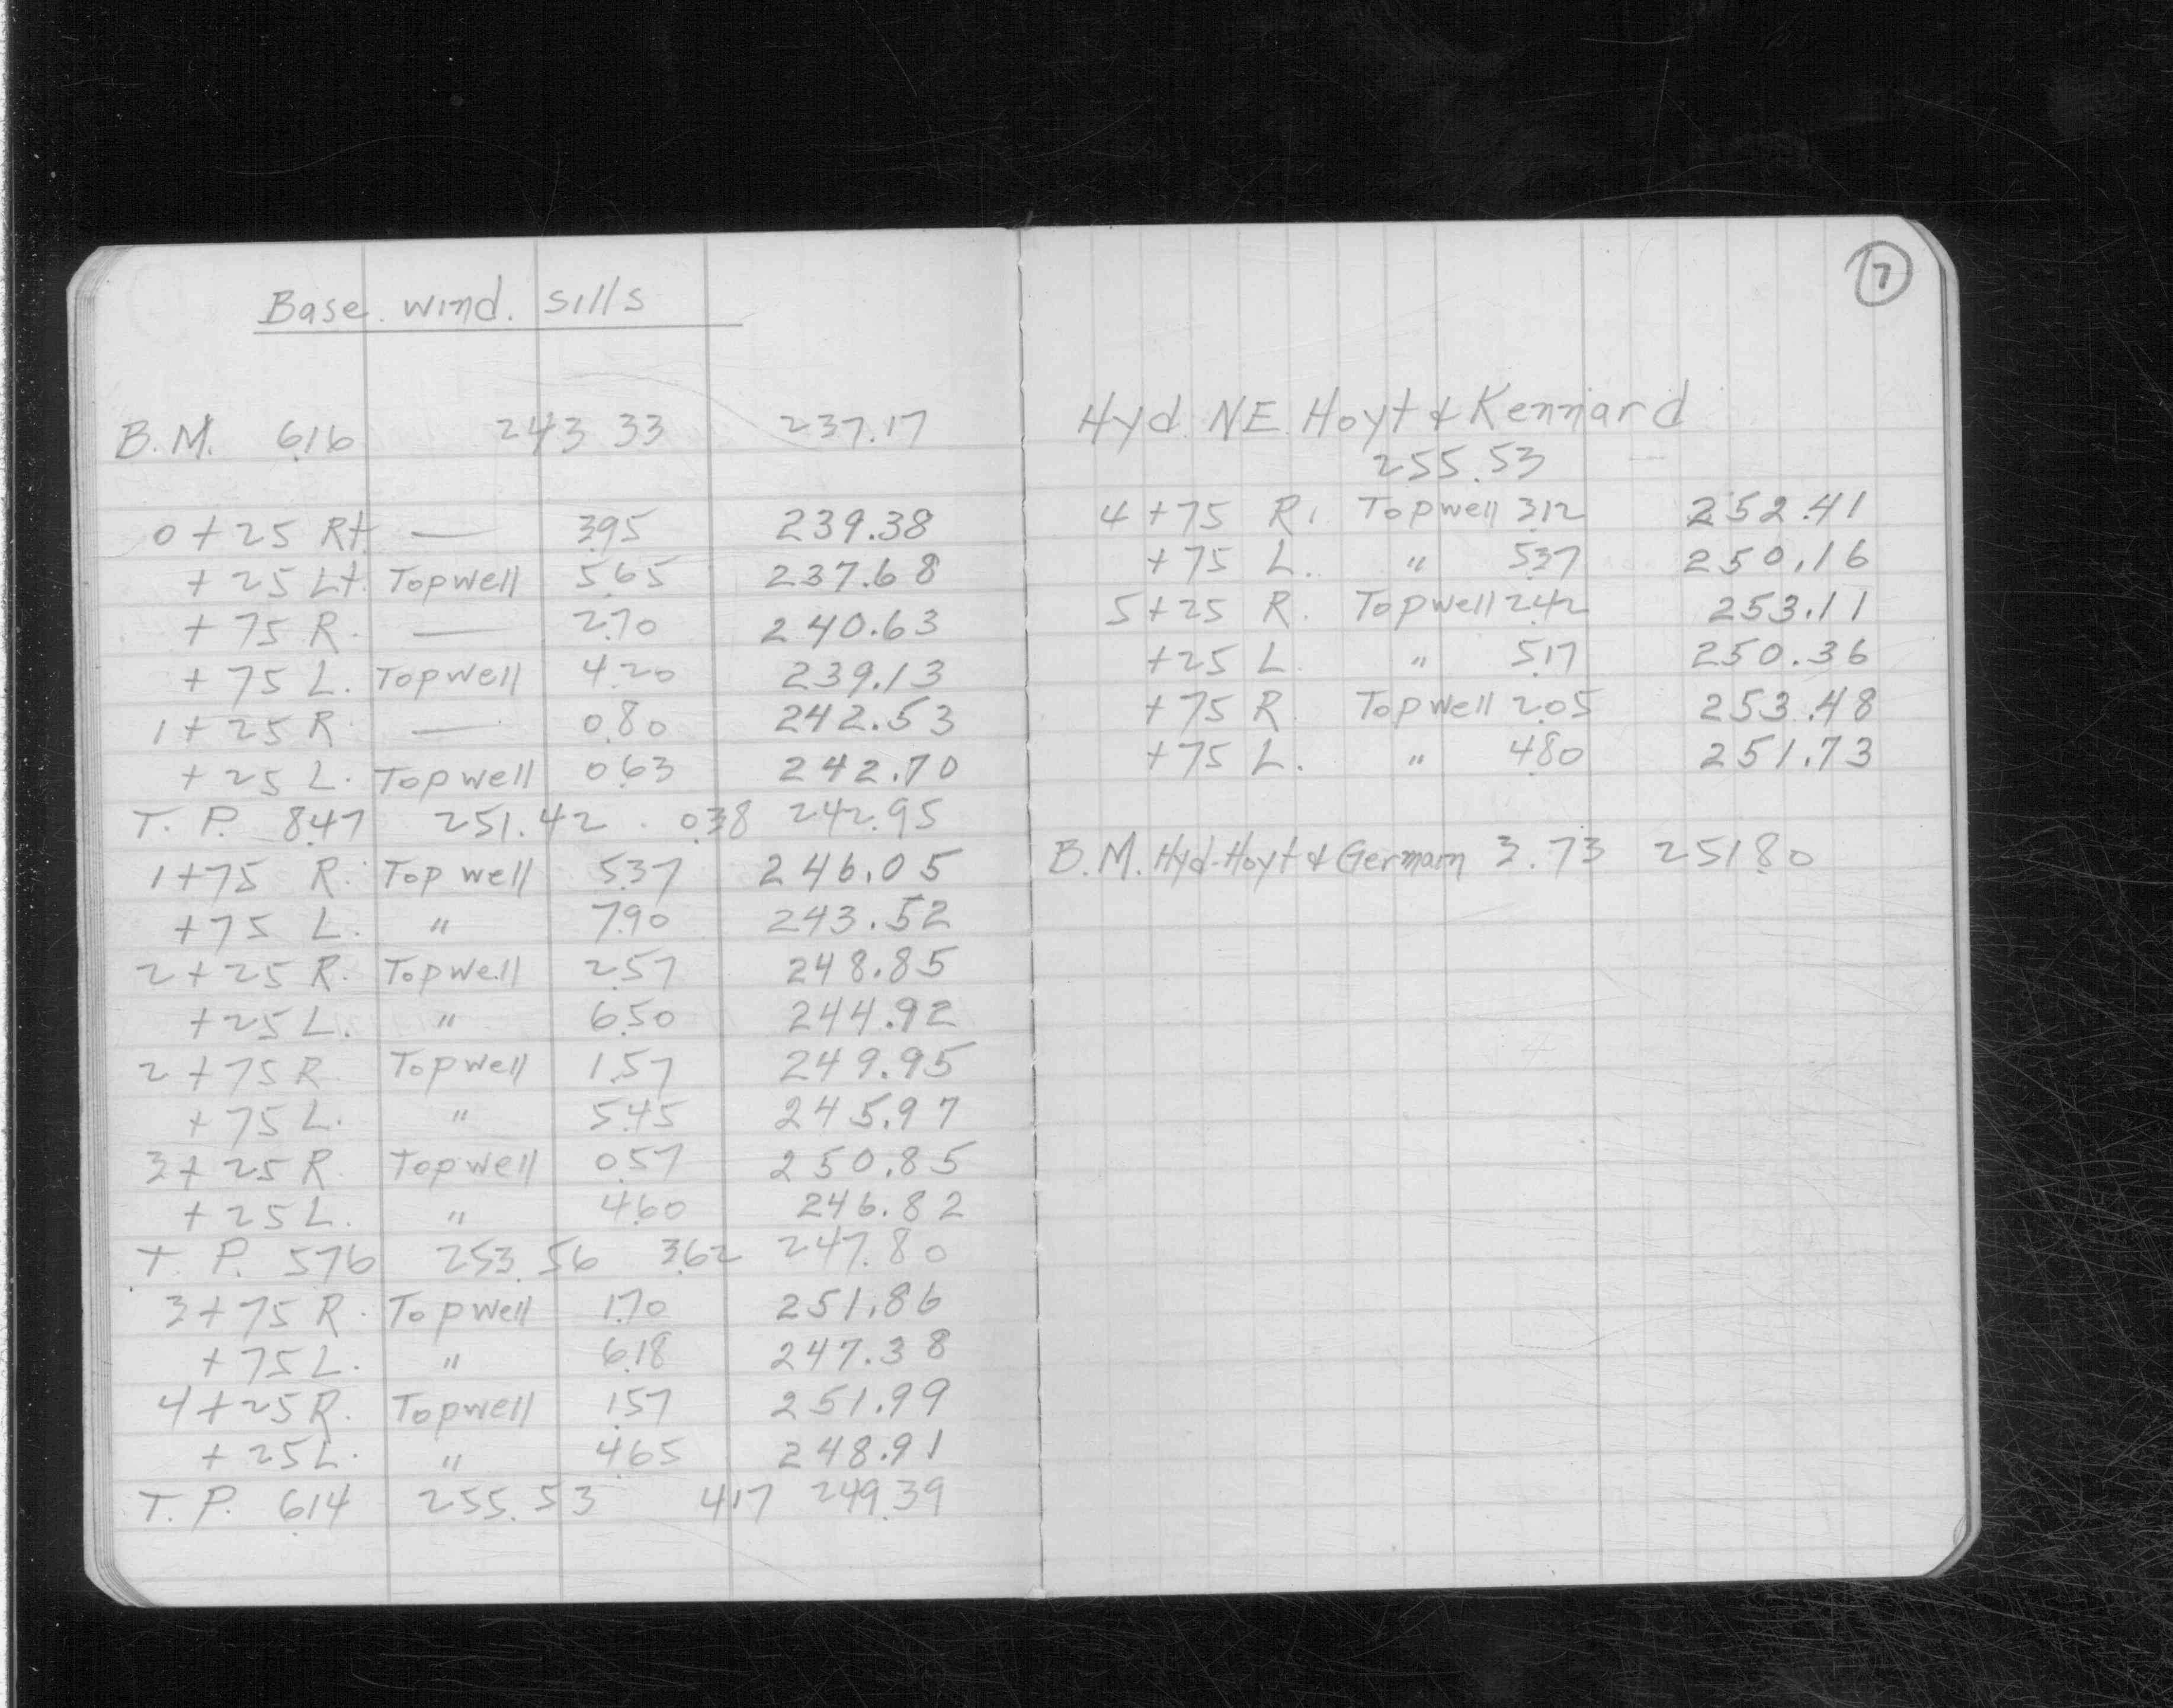 Base. wind. sills
B.M. 6.16 243 33 237.17
0+25 Rt. — 3.95 239.38
+25 Lt. Topwell 5.65 237.68
+75 R. — 2.70 240.63
+75 L. Topwell 4.20 239.13
1+25 R — 0.80 242.53
+25 L. Topwell 0.63 242.70
T. P. 8.47 251.42 0.38 242.95
1+75 R. Topwell 5.37 246.05
+75 L. " 7.90 243.52
2+25 R. Topwell 2.57 248.85
+25 L. " 6.50 244.92
2+75 R Topwell 1.57 249.95
+75 L. " 5.45 245.97
3+25 R. Topwell 0.57 250.85
+25 L. " 4.60 246.82
T. P. 5.76 253.56 3.62 247.80
3+75 R. Topwell 1.70 251.86
+75 L. " 6.18 247.38
4+25 R. Topwell 1.57 251.99
+25 L. " 4.65 248.91
T. P. 6.14 255.53 4.17 249.39
7
Hyd. NE. Hoyt & Kennard
255.53
4+75 R. Topwell 3.12 252.41
+75 L. " 5.37 250.16
5+25 R. Topwell 2.42 253.11
+25 L. " 5.17 250.36
+75 R. Topwell 2.05 253.48
+75 L. " 4.80 251.73
B.M. Hyd-Hoyt & Germain 3.73 251.80